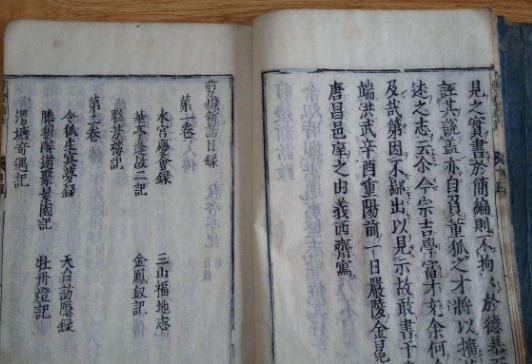 見之實書於簡編則不拘於德
誣其說蓋亦自負董狐之才將以擴
述之志云余今宗吉學富才充余何
及哉第因不鄙出以見示故敢書于
端洪武辛酉重陽前一日嚴陵金冕
唐昌邑庠之由義西齋寫
剪燈新話目錄
第一卷
水宮慶會錄 三山福地志
華亭逢故人記 金鳳釵記
聯芳樓記
第二卷
令狐生冥夢錄 天台訪隱錄
滕穆醉遊聚景園記 牡丹燈記
渭塘奇遇記